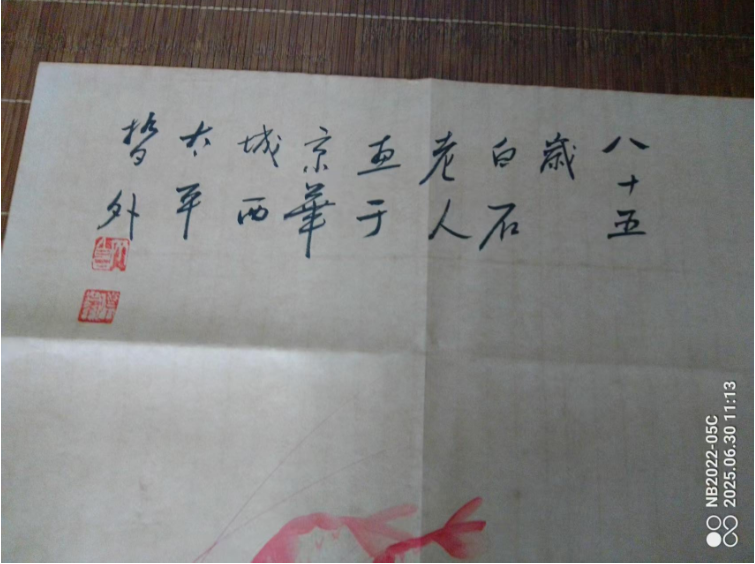 八十五
歲
白石
老人
画于
京華
城西
太平
橋外
NB2022-05C
2025.06.30 11:13